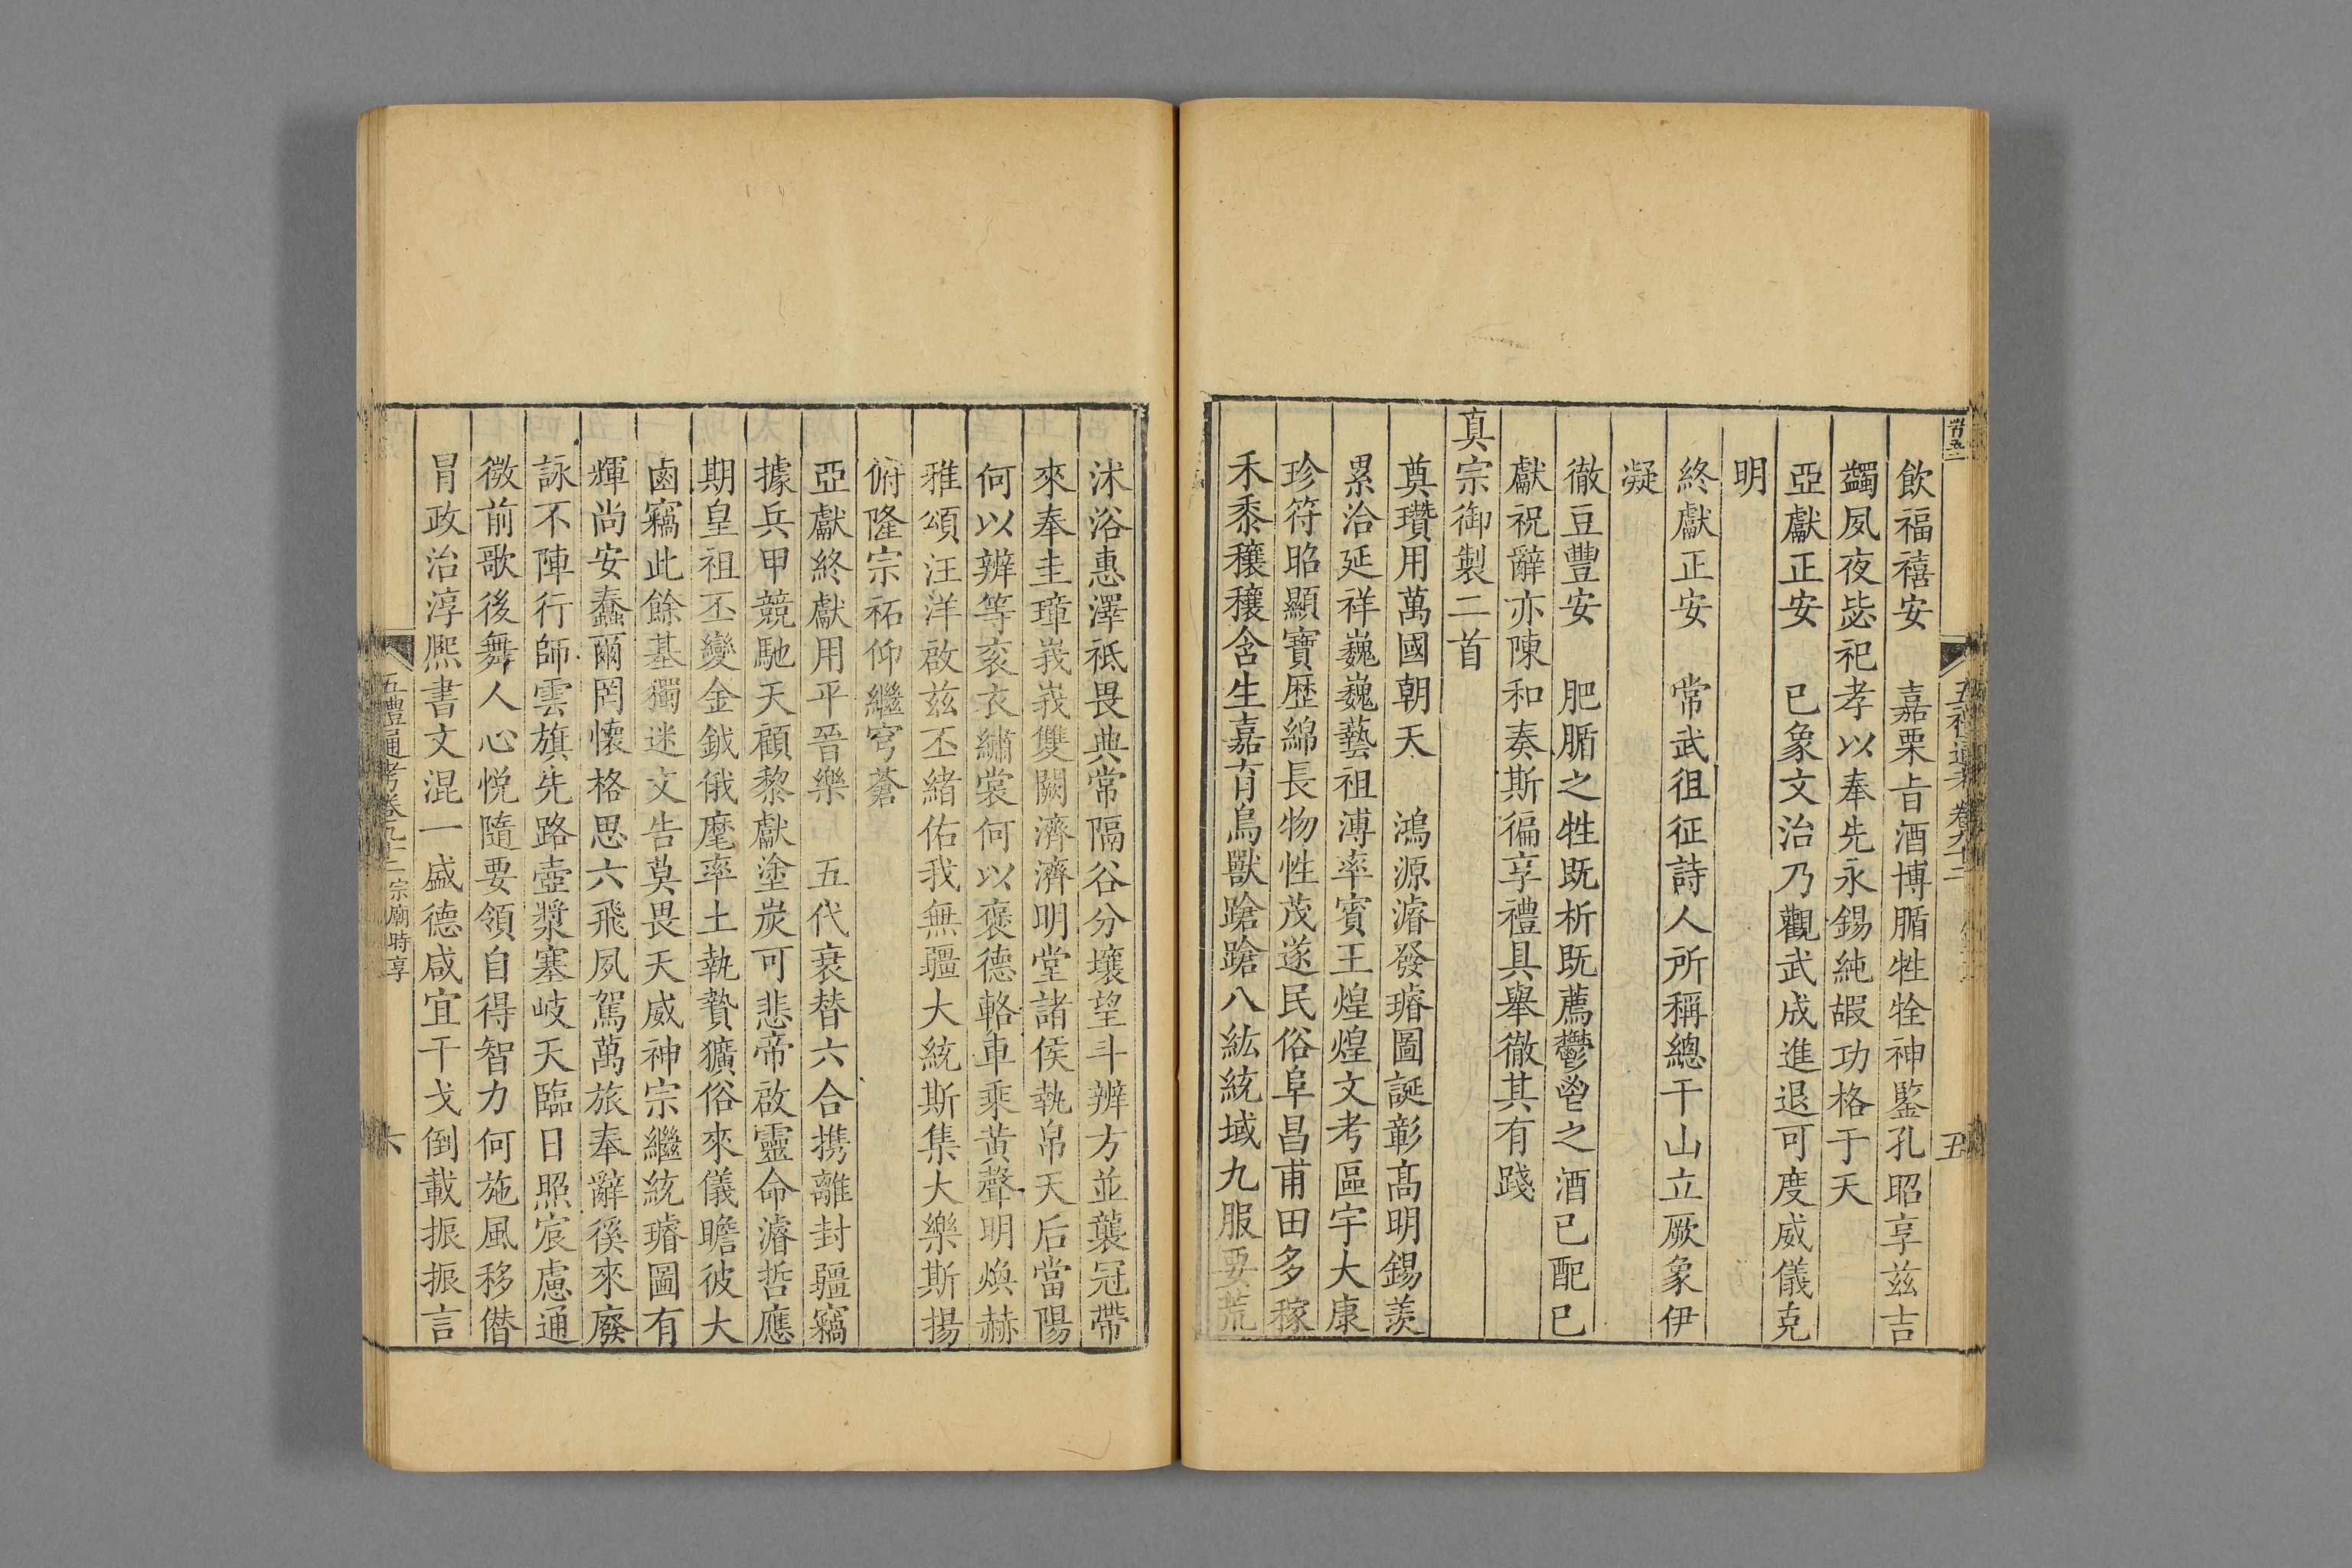 飲福禧安　嘉栗旨酒博腯牲牷神鍳孔昭享兹吉
蠲夙夜毖祀孝以奉先永錫純嘏功格于天
亞獻正安　已象文治乃觀武成進退可度威儀克
明
終獻正安　常武徂征詩人所稱總干山立厥象伊
凝
徹豆豐安　肥腯之牲既析既薦鬱鬯之酒已配已
獻祝辭亦陳和奏斯徧享禮具舉徹其有踐
真宗御製二首
奠瓚用萬國朝天　鴻源濬發璿圖誕彰高明錫羡
累洽延祥巍巍藝祖溥率賓王煌煌文考區宇大康
珍符昭顯寶歴綿長物性茂遂民俗阜昌甫田多稼
禾黍穰穰含生嘉育鳥獸蹌蹌八紘統域九服要荒
沭浴惠澤祗畏典常隔谷分壤望斗辨方並襲冠帶
來奉圭璋峩峩雙闕濟濟明堂諸侯執帛天后當陽
何以辨等衮衣繡裳何以褒德輅車乘黄聲明煥赫
雅頌汪洋啟兹丕緒佑我無疆大統斯集大樂斯揚
俯隆宗祏仰繼穹蒼
亞獻終獻用平晉樂　五代衰替六合携離封疆竊
據兵甲競馳天顧黎獻塗炭可悲帝啟靈命濬哲應
期皇祖丕變金鉞俄麾率土執贄獷俗來儀瞻彼大
鹵竊此餘基獨迷文告莫畏天威神宗繼統璿圖有
輝尚安蠢爾罔懷格思六飛夙駕萬旅奉辭徯來廢
詠不陣行師雲旗先路壺漿塞岐天臨日照宸慮通
微前歌後舞人心悅隨要領自得智力何施風移僭
冒政治淳熙書文混一盛德咸宜干戈倒載振振言
五禮通考卷九十二 宗廟時享
六